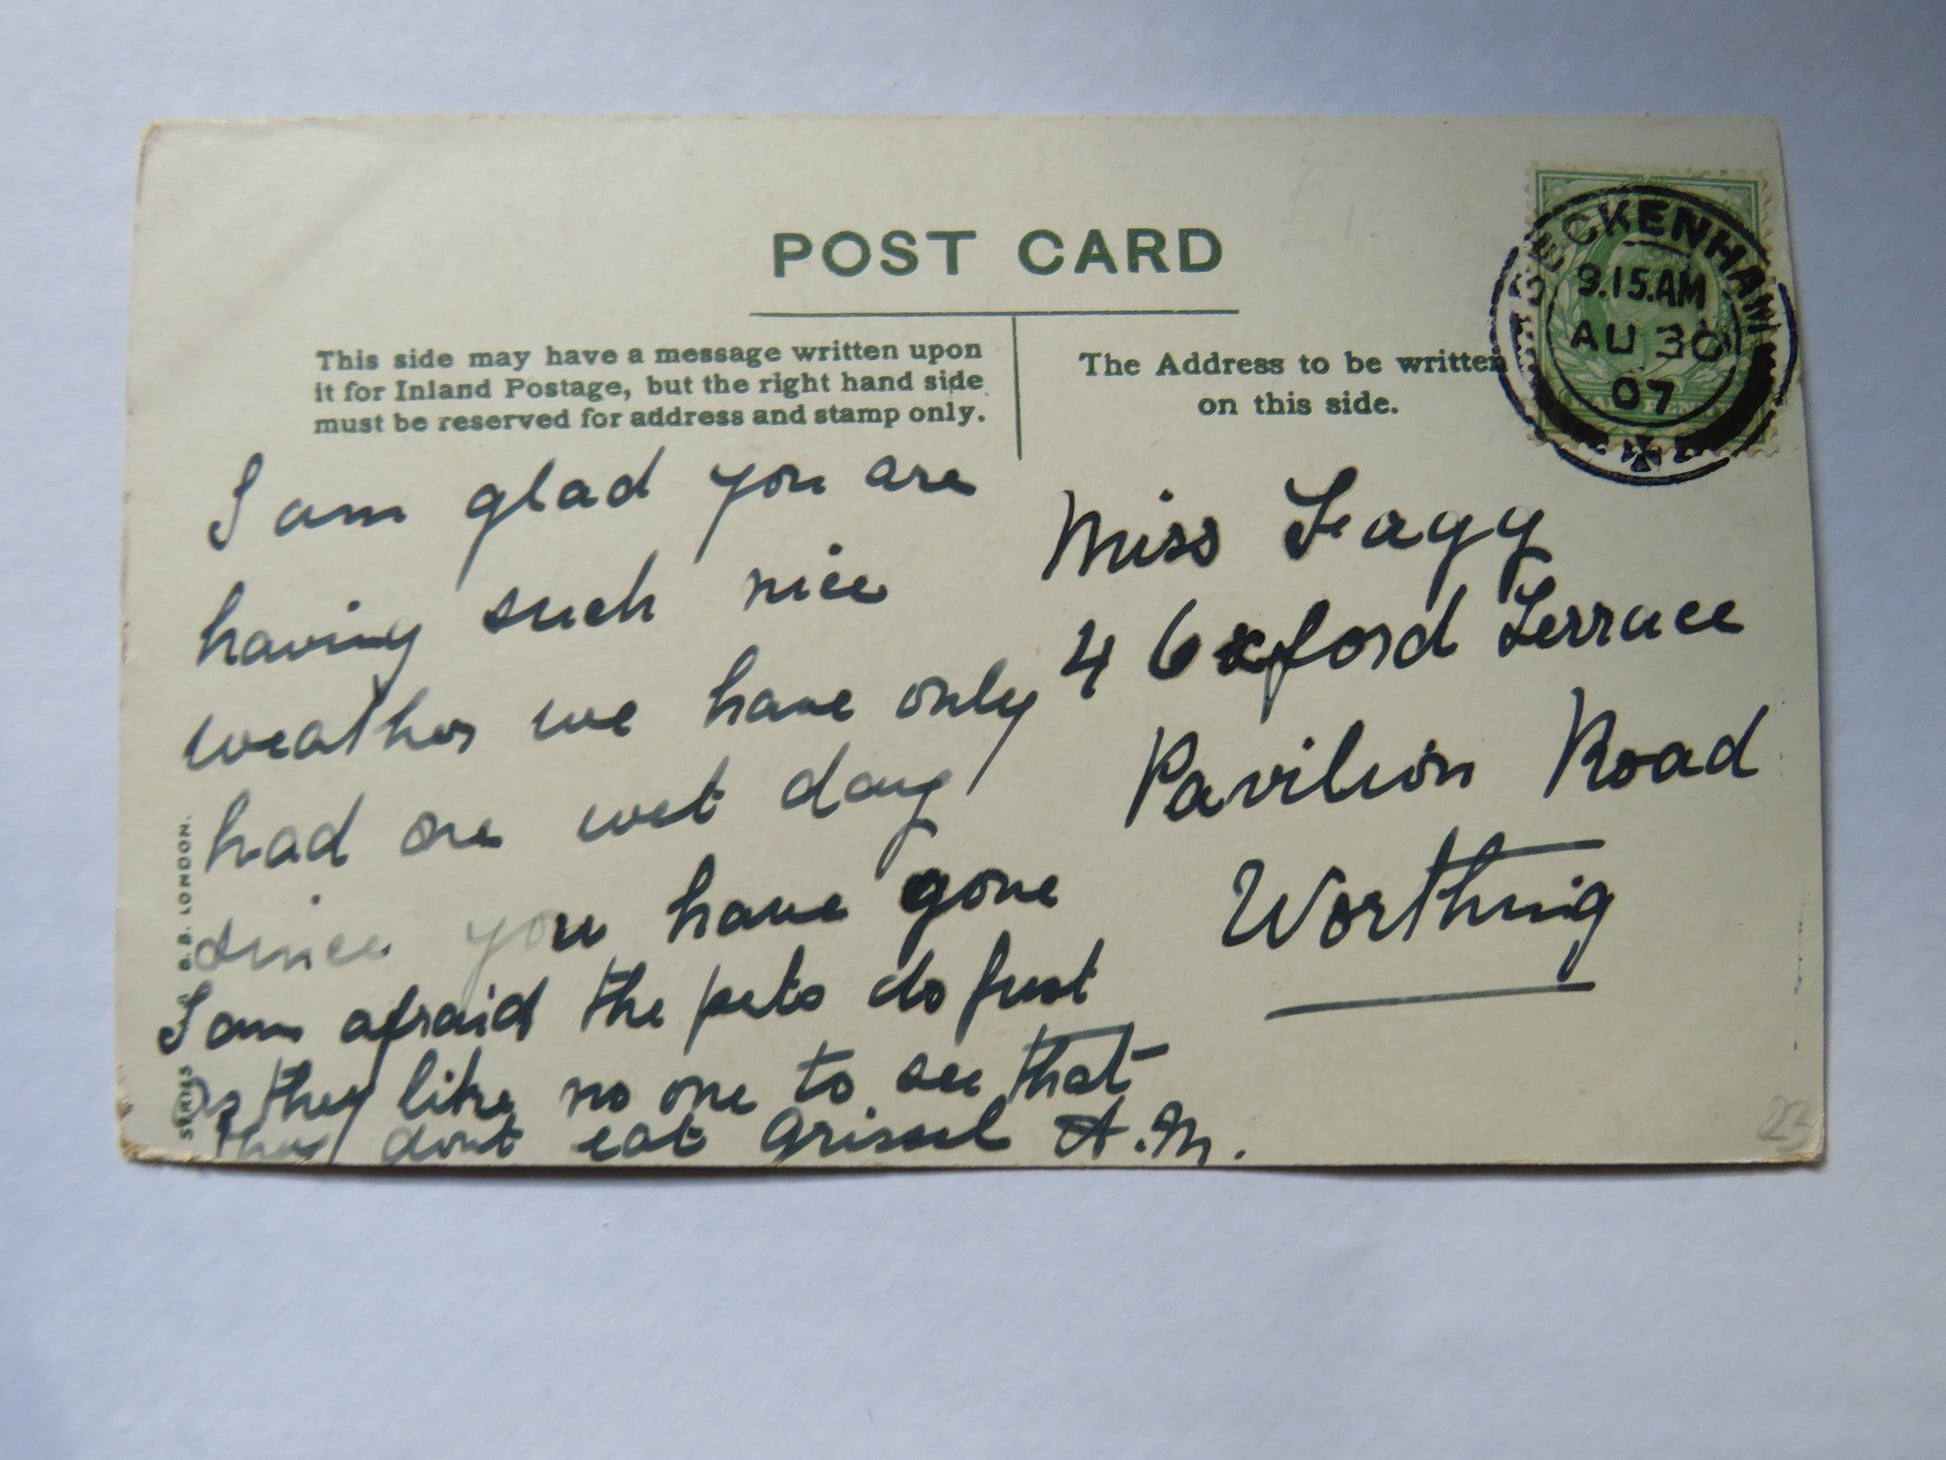 POST CARD
This side may have a message written upon
it for Inland Postage, but the right hand side
must be reserved for address and stamp only.
The Address to be written
on this side.
BECKENHAM
9.15.AM
AU 30
07
I am glad you are
having such nice
weather we have only
had one wet day
since you have gone
I am afraid the pets do fret
as they like no one to see that
they dont eat Grissel A.M.
Miss Fagg
4 Oxford Terrace
Pavilion Road
Worthing
SERIES
B.B. LONDON.
23